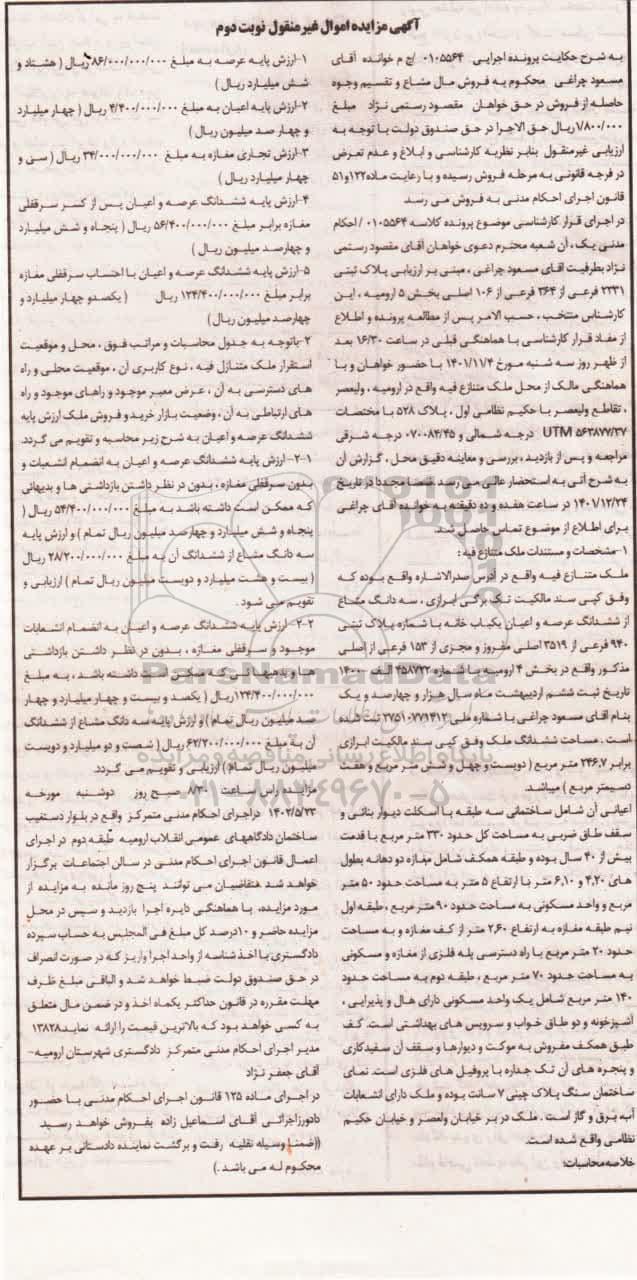 آگهی مزایده اموال غیرمنقول نوبت دوم
به شرح حکایت پرونده اجرایی ۰۱۰۵۵۶۴ /ج م خوانده آقای
مسعود چراغی محکوم به فروش مال مشاع و تقسیم وجوه
حاصله از فروش در حق خواهان مقصود رستمی نژاد مبلغ
۷/۸۰۰/۰۰۰ ریال حق الاجرا در حق صندوق دولت با توجه به
ارزیابی غیرمنقول بنابر نظریه کارشناسی و ابلاغ و عدم تعرض
در فرجه قانونی به مرحله فروش رسیده و با رعایت ماده ۱۲۲و۵۱
قانون اجرای احکام مدنی به فروش می رسد
در اجرای قرار کارشناسی موضوع پرونده کلاسه ۰۱۰۵۵۶۴ / احکام
مدنی یک ، آن شعبه محترم دعوی خواهان آقای مقصود رستمی
نژاد بطرفیت آقای مسعود چراغی ، مبنی بر ارزیابی پلاک ثبتی
۲۳۳۱ فرعی از ۳۶۴ فرعی از ۱۰۶ اصلی بخش ۵ ارومیه ، این
کارشناس منتخب ، حسب الامر پس از مطالعه پرونده و اطلاع
از مفاد قرار کارشناسی با هماهنگی قبلی در ساعت ۱۶/۳۰ بعد
از ظهر روز سه شنبه مورخ ۱۴۰۱/۱۱/۴ با حضور خواهان و با
هماهنگی مالک از محل ملک متنازع فیه واقع در ارومیه ، ولیعصر
، تقاطع ولیعصر با حکیم نظامی اول ، پلاک ۵۲۸ با مختصات
UTM ۵۶۳۸۷۷/۳۷ درجه شمالی و ۰۷۰۰۸۴/۴۵ درجه شرقی
مراجعه و پس از بازدید ، بررسی و معاینه دقیق محل ، گزارش آن
به شرح آتی به استحضار عالی می رسد ضمنا مجددا در تاریخ
۱۴۰۱/۱۲/۲۴ در ساعت هفده و ده دقیقه به خوانده آقای چراغی
برای اطلاع از موضوع تماس حاصل شد.
۱-مشخصات و مستندات ملک متنازع فیه :
ملک متنازع فیه واقع در آدرس صدرالاشاره واقع بوده که
وفق کپی سند مالکیت تک برگی ابرازی ، سه دانگ مشاع
از ششدانگ عرصه و اعیان یکباب خانه با شماره پلاک ثبتی
۹۴۰ فرعی از ۳۵۱۹ اصلی مفروز و مجزی از ۱۵۳ فرعی از اصلی
مذکور واقع در بخش ۴ ارومیه با شماره ۴۵۸۷۳۲ الف ۱۴۰۰۰
تاریخ ثبت ششم اردیبهشت ماه سال هزار و چهارصد و یک
بنام آقای مسعود چراغی با شماره ملی ۲۷۵۱۰۷۷۱۴۱۲ ثبت شده
است . مساحت ششدانگ ملک وفق کپی سند مالکیت ابرازی
برابر ۲۴۶٫۷ متر مربع ( دویست و چهل و شش متر مربع و هفت
دسیمتر مربع ) میباشد.
اعیانی آن شامل ساختمانی سه طبقه با اسکلت دیوار بنائی و
سقف طاق ضربی به مساحت کل حدود ۳۳۰ متر مربع با قدمت
بیش از ۴۰ سال بوده و طبقه همکف شامل مغازه دو دهانه بطول
های ۴٫۲۰ و ۶٫۱۰ متر با ارتفاع ۵ متر به مساحت حدود ۵۰ متر
مربع و واحد مسکونی به مساحت حدود ۹۰ متر مربع ، طبقه اول
نیم طبقه مغازه به ارتفاع ۲٫۶۰ متر از کف مغازه و به مساحت
حدود ۲۰ متر مربع با راه دسترسی پله فلزی از مغازه و مسکونی
به مساحت حدود ۷۰ متر مربع ، طبقه دوم به مساحت حدود
۱۴۰ متر مربع شامل یک واحد مسکونی دارای هال و پذیرایی ،
آشپزخونه و دو طاق خواب و سرویس های بهداشتی است. کف
طبق همکف مفروش به موکت و دیوارها و سقف آن سفیدکاری
و پنجره های آن تک جداره با پروفیل های فلزی است. نمای
ساختمان سنگ پلاک چینی ۷ سانت بوده و ملک دارای انشعابات
آب برق و گاز است . ملک در بر خیابان ولعصر و خیابان حکیم
نظامی واقع شده است.
خلاصه محاسبات:
۱-ارزش پایه عرصه به مبلغ ۸۶/۰۰۰/۰۰۰/۰۰۰ ریال ( هشتاد و
شش میلیارد ریال )
۲-ارزش پایه اعیان به مبلغ ۴/۴۰۰/۰۰۰/۰۰۰ ریال ( چهار میلیارد
و چهار صد میلیون ریال )
۳-ارزش تجاری مغازه به مبلغ ۳۴/۰۰۰/۰۰۰/۰۰۰ ریال ( سی و
چهار میلیارد ریال )
۴-ارزش پایه ششدانگ عرصه و اعیان پس از کسر سرقفلی
مغازه برابر مبلغ ۵۶/۴۰۰/۰۰۰/۰۰۰ ریال ( پنجاه و شش میلیارد
و چهارصد میلیون ریال )
۵-ارزش پایه ششدانگ عرصه و اعیان با احتساب سرقفلی مغازه
برابر مبلغ ۱۲۴/۴۰۰/۰۰۰/۰۰۰ ریال ( یکصدو چهار میلیارد و
چهارصد میلیون ریال)
۲-باتوجه به جدول محاسبات و مراتب فوق ، محل و موقعیت
استقرار ملک متنازل فیه ، نوع کاربری آن ، موقعیت محلی و راه
های دسترسی به آن ، عرض معبر موجود و راهای موجود و راه
های ارتباطی به آن ، وضعیت بازار خرید و فروش ملک ارزش پایه
ششدانگ عرصه و اعیان به شرح زیر محاسبه و تقویم می گردد.
۲-۱- ارزش پایه ششدانگ عرصه و اعیان به انضمام انشعبات و
بدون سرقفلی مغازه ، بدون در نظر داشتن بازداشتی ها و بدیهائی
که ممکن است داشته باشد به مبلغ ۵۴/۴۰۰/۰۰۰/۰۰۰ ریال (
پنجاه و شش میلیارد و چهارصد میلیون ریال تمام ) و ارزش پایه
سه دانگ مشاع از ششدانگ آن به مبلغ ۲۸/۲۰۰/۰۰۰/۰۰۰ ریال
( بیست و هشت میلیارد و دویست میلیون ریال تمام ) ارزیابی و
تقویم می شود .
۲-۲- ارزش پایه ششدانگ عرصه و اعیان به انضمام انشعابات
موجود و سرقفلی مغازه ، بدون در نظر داشتن بازداشتی
ها و بدهیهائی که ممکن است داشته باشد ، به مبلغ
۱۲۴/۴۰۰/۰۰۰/۰۰۰ریال ( یکصد و بیست و چهار میلیارد و چهار
صد میلیون ریال تمام ) و ارزش پایه سه دانگ مشاع از ششدانگ
آن به مبلغ ۶۲/۲۰۰/۰۰۰/۰۰۰ ریال ( شصت و دو میلیارد و دویست
میلیون ریال تمام ) ارزیابی و تقویم می گردد.
مزایده راس ساعت ۸:۳۰ صبح روز دوشنبه مورخه
۱۴۰۲/۵/۲۳ دراجرای احکام مدنی متمرکز واقع در بلوار دستغیب
ساختمان دادگاههای عمومی انقلاب ارومیه طبقه دوم در اجرای
اعمال قانون اجرای احکام مدنی در سالن اجتماعات برگزار
خواهد شد متقاضیان می توانند پنج روز مانده به مزایده از
مورد مزایده، با هماهنگی دایره اجرا بازدید و سپس در محل
مزایده حاضر و ۱۰درصد کل مبلغ فی المجلس به حساب سپرده
دادگستری با اخذ شناسه از واحد اجرا واریز که در صورت انصراف
در حق صندوق دولت ضبط خواهد شد و الباقی مبلغ ظرف
مهلت مقرره در قانون حداکثر یکماه اخذ و در ضمن مال متعلق
به کسی خواهد بود که بالاترین قیمت را ارائه نماید ۱۳۸۲۸
مدیر اجرای احکام مدنی متمرکز دادگستری شهرستان ارومیه-
آقای جعفر نژاد
در اجرای ماده ۱۲۵ قانون اجرای احکام مدنی با حضور
دادورزاجرائی آقای اسماعیل زاده بفروش خواهد رسید
((ضمنا وسیله نقلیه رفت و برگشت نماینده دادستانی بر عهده
محکوم له می باشد .)
ParsNamadData
پایگاه اطلاع رسانی مناقصه و مزایده
۰۲۱-۸۸۳۴۹۶۷۰-۵